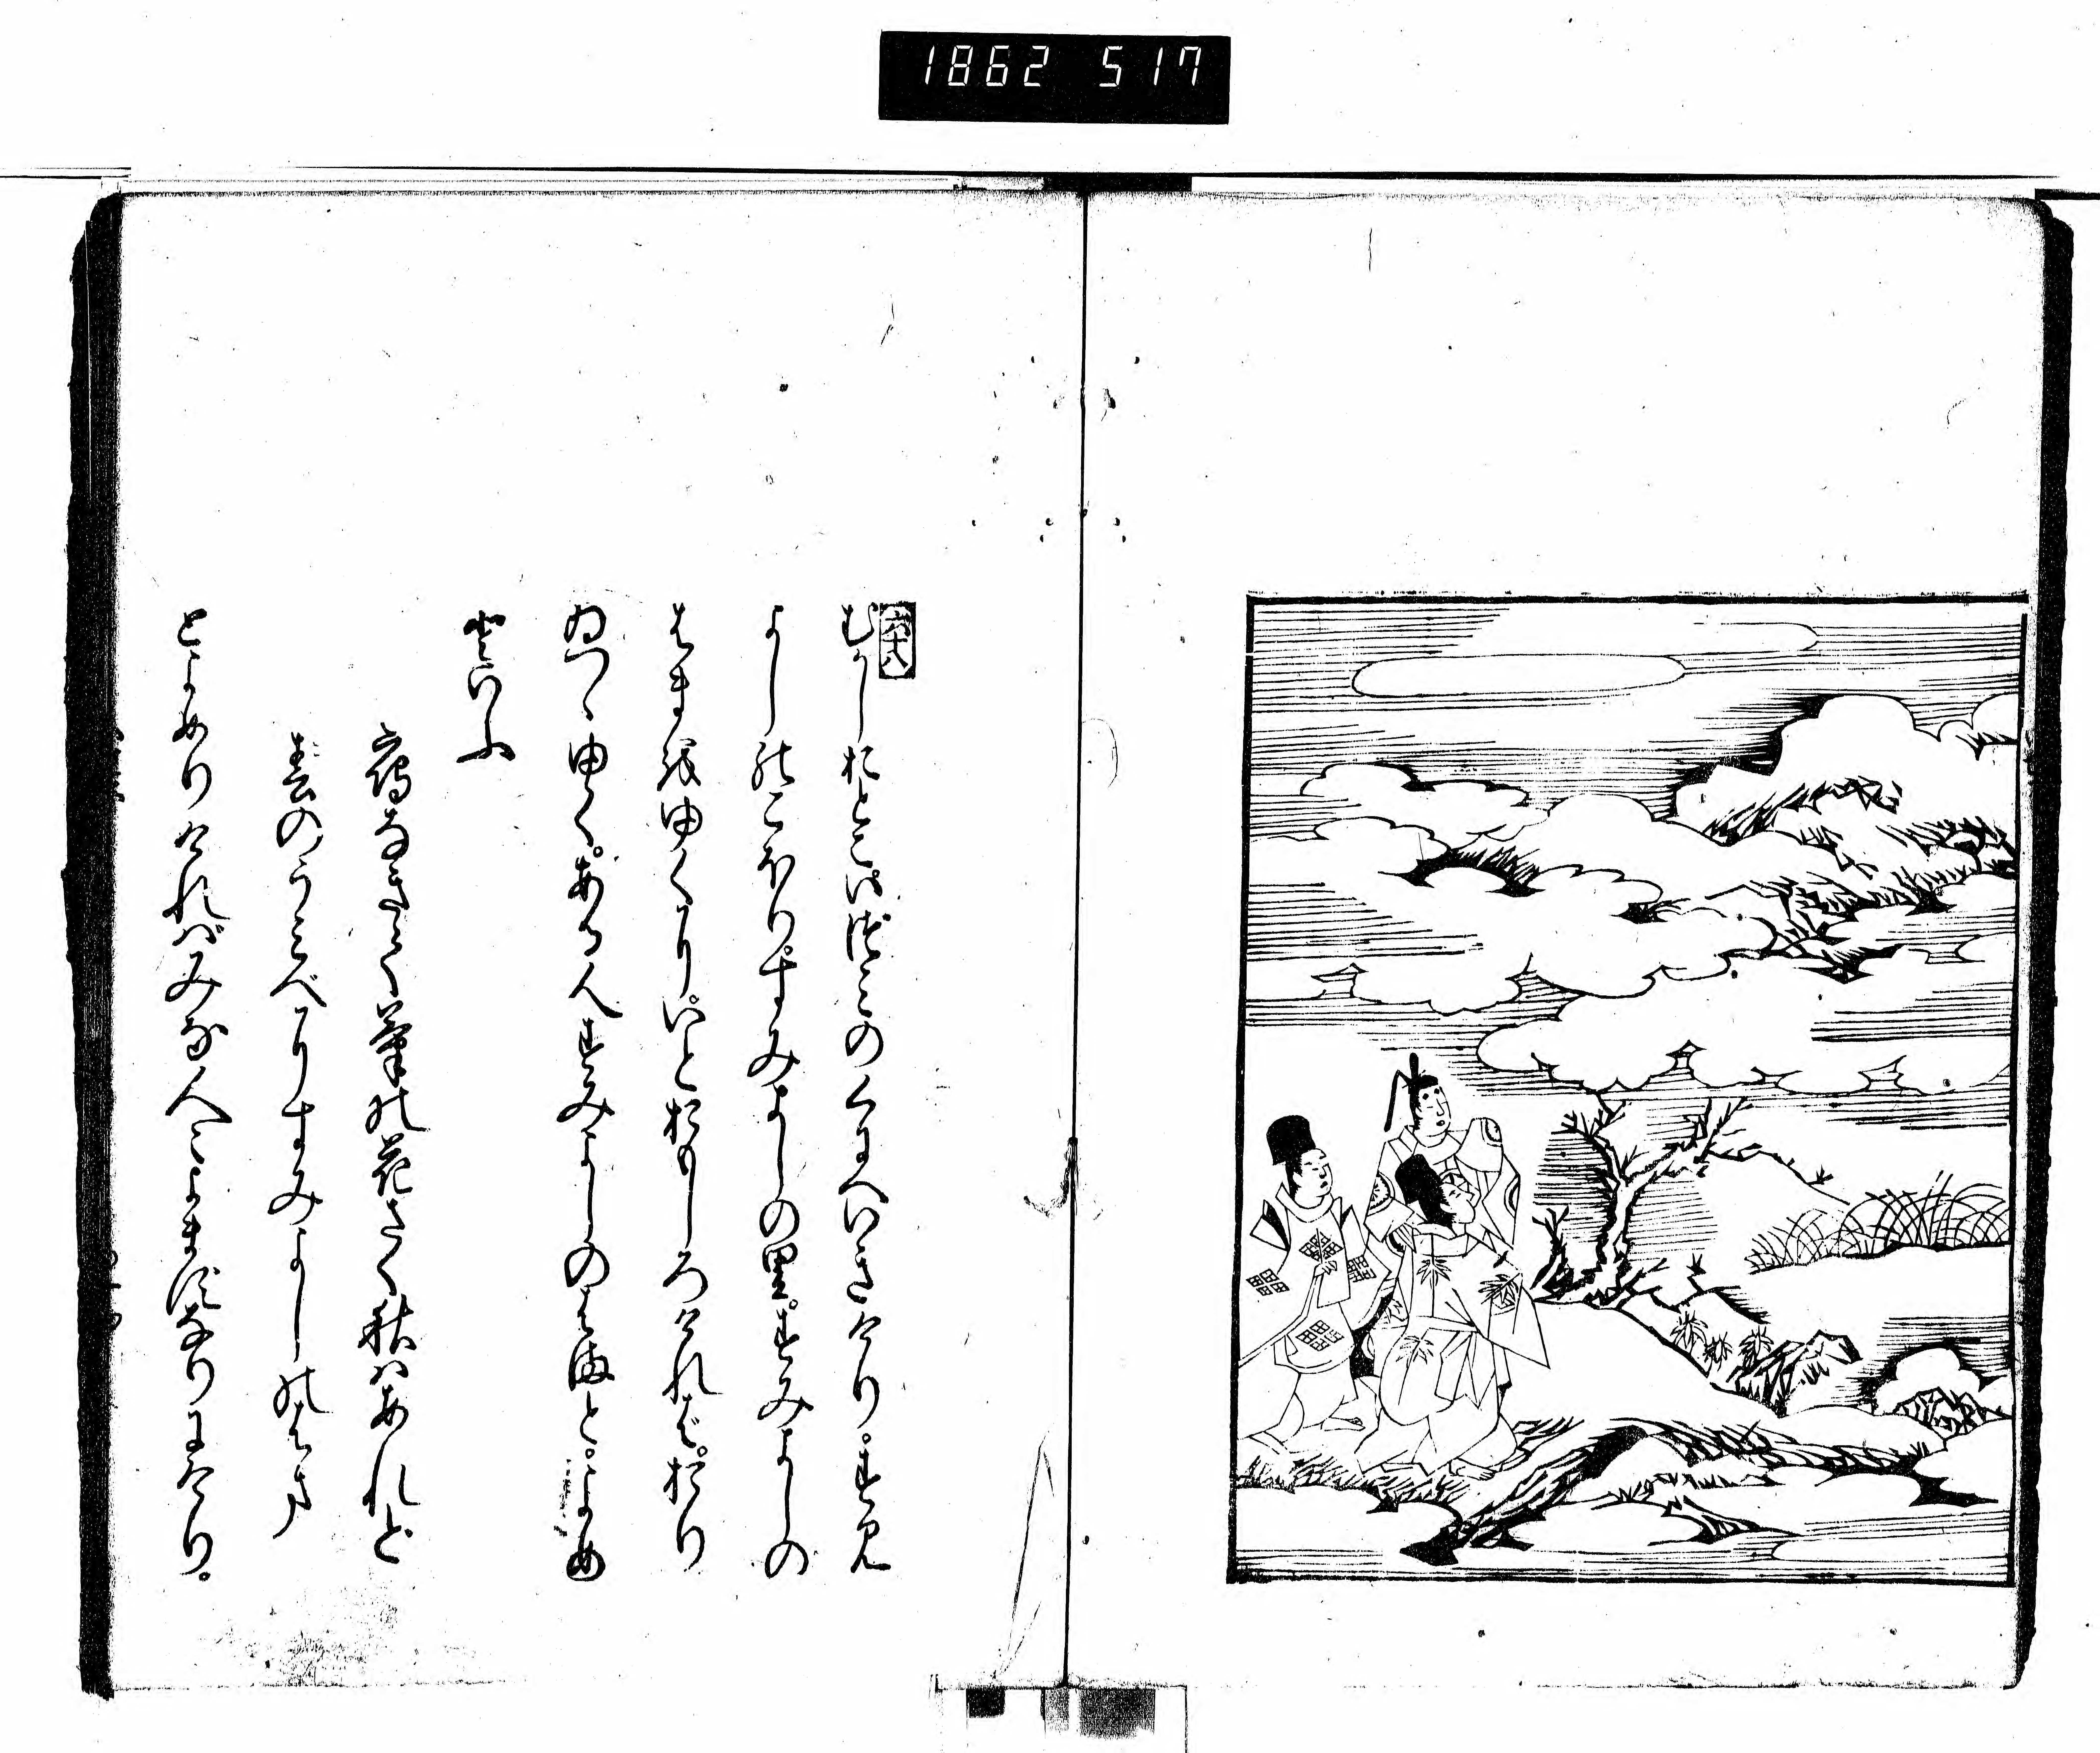 1862 517
六十八
むかしおとこいづみのくにへいきけり。すみ
よしのこほり。すみよしの里。すみよしの
はまをゆくに。いとおもしろければ。おり
ゐつゝゆく。ある人すみよしのはまと。よめ
といふ
鴈なきて菊の花さく秋はあれど
春のうみべにすみよしのはま
とよめりければみな人〻よまずなりにけり。